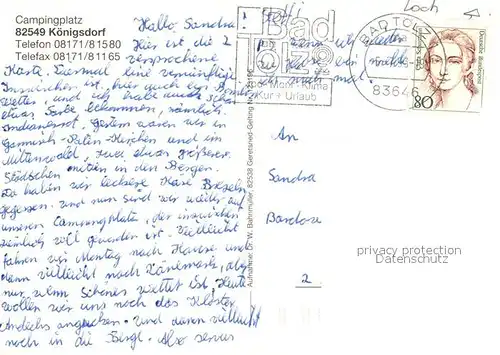 Campingplatz
82549 Königsdorf
Telefon 08171/81580
Telefax 08171/81165
Hallo Sandra!
Hier ist die 2
versprochene
Karte. Diesmal eine vernünftige.
Inzwischen ist hier auch ein
Wetter, und ich habe auch schon
etwas Farbe bekommen, nämlich
Indianerrot. Gestern waren wir in
Garmisch-Paten-Kirchen und in
Mittenwald, zwei etwas größeren
Städtchen mitten in den Bergen.
Da haben wir leckere Käse Brezeln
gegessen. und nun sind wir wieder auf
unseren Campingplatz, der inzwischen
ziemlich voll geworden ist. Vielleicht
fahren wir Montag nach Hause und
dann vielleicht noch nach Dänemark, aber
nur wenn schönes Wetter ist. Heute
wollen wir uns noch das Kloster
Andechs angucken. Und dann vielleicht
noch in die Berge. Also servus
Loch
Bad
Tölz
Moor Klima
Kur + Urlaub
BAD TÖLZ
83646
Deutsche Bundespost
80
Aufnahme: Dr. W. Bahnmüller, 82538 Geretsried-Gelting
An
Sandra
Bardoza
2
privacy protection
Datenschutz